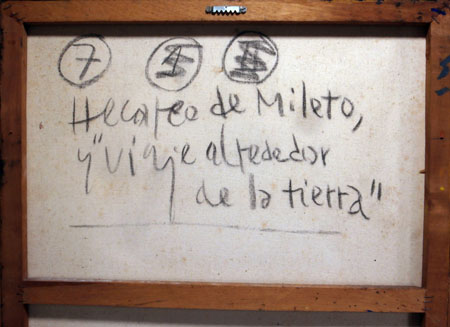 7
Hecateo de Mileto,
y "viaje alrededor
de la tierra"